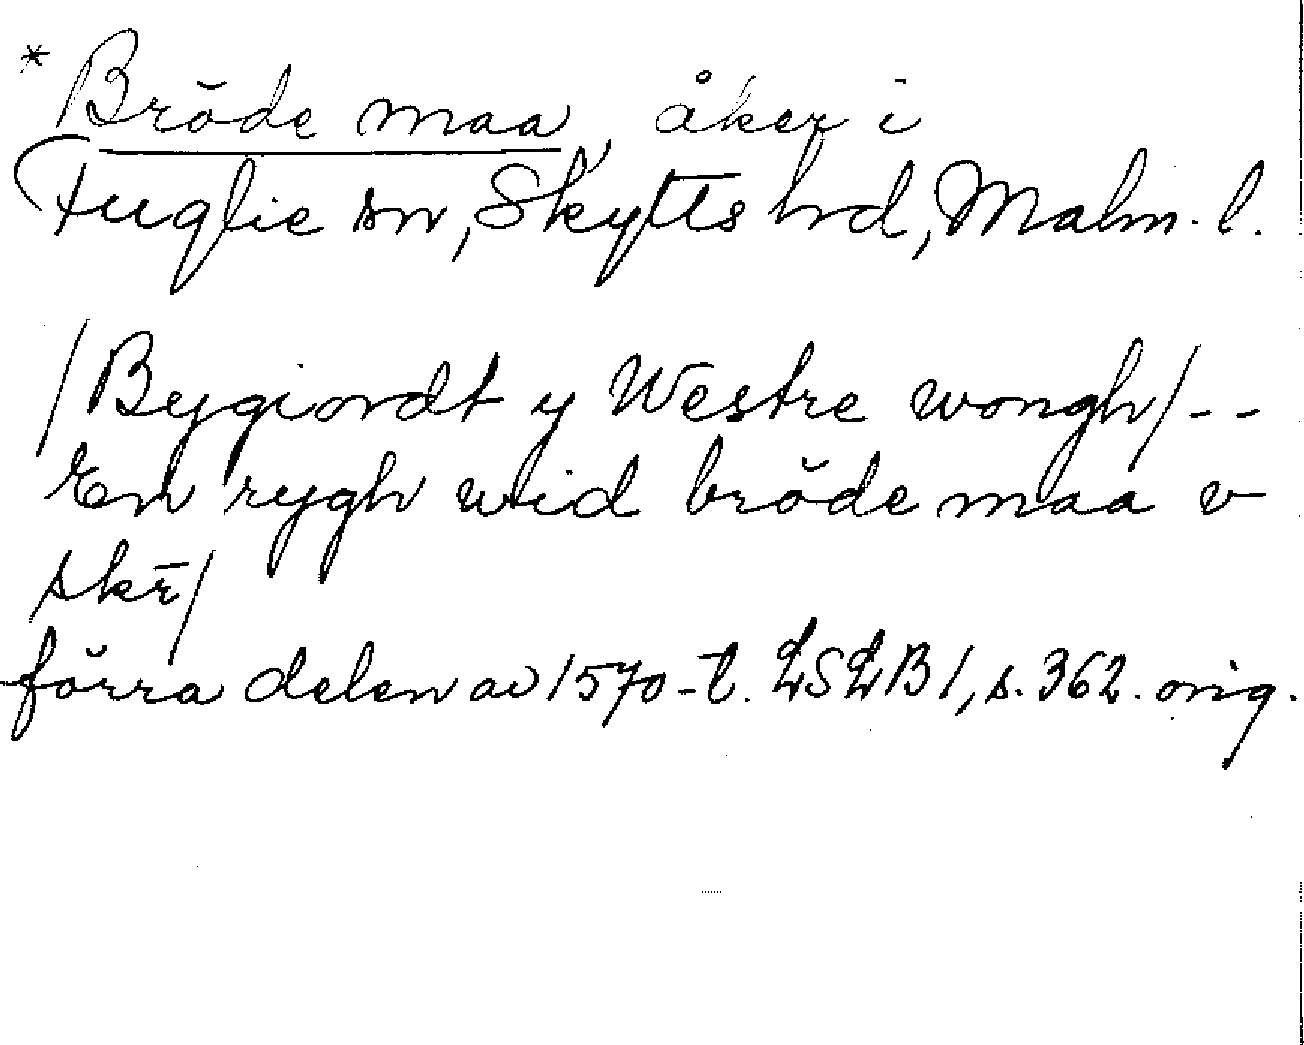 * Bröde maa, åker i
Fuglie sn, Skytts hrd, Malm. l.
/Bygiordt y Westre wongh/ --
En rygh wid bröde maa v
skr̄/
förra delen av 1570-t. LSLB1, s. 362. orig.